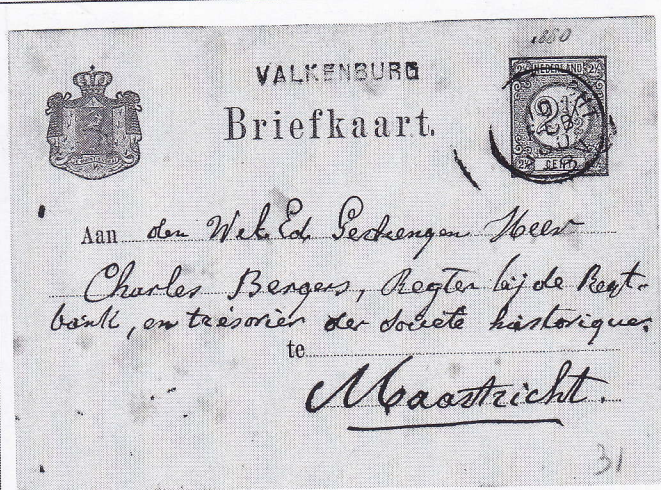 1880
VALKENBURG
Briefkaart.
2½ NEDERLAND 2½
2½
2½ CENT 2½
Aan den Wel. Ed. Gestrengen Heer
Charles Bergers, Regter bij de Regt-
bank, en trésorier der Société historique.
te
Maastricht.
31